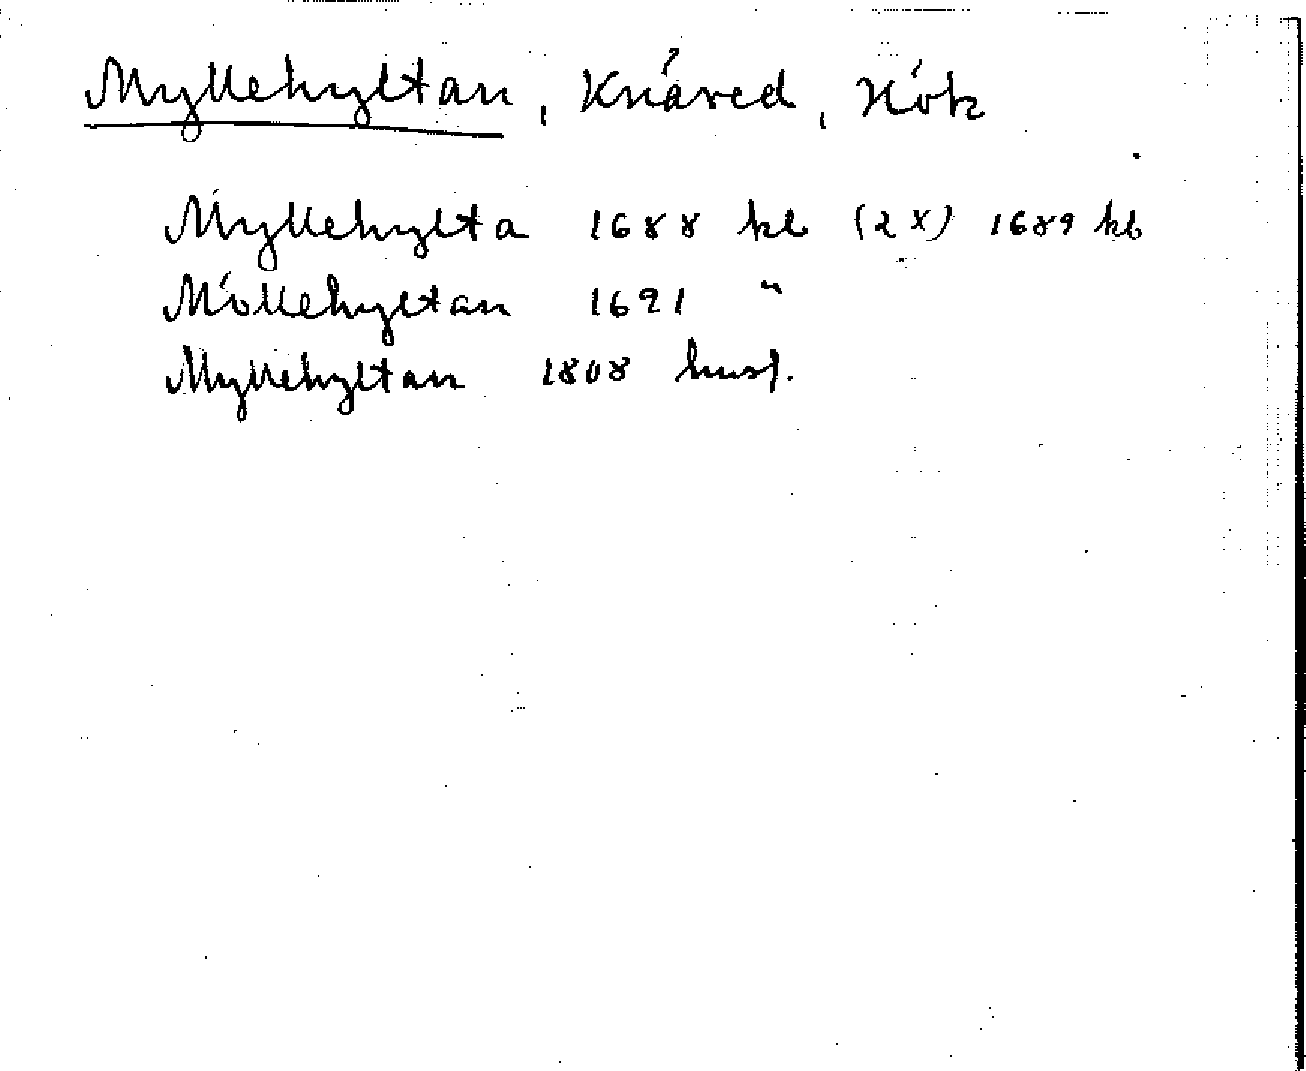 Myllehyltan, Knäred, Hök
Myllehylta 1688 kb (2x) 1689 kb
Möllehyltan 1691 "
Myllehyltan 1808 husf.